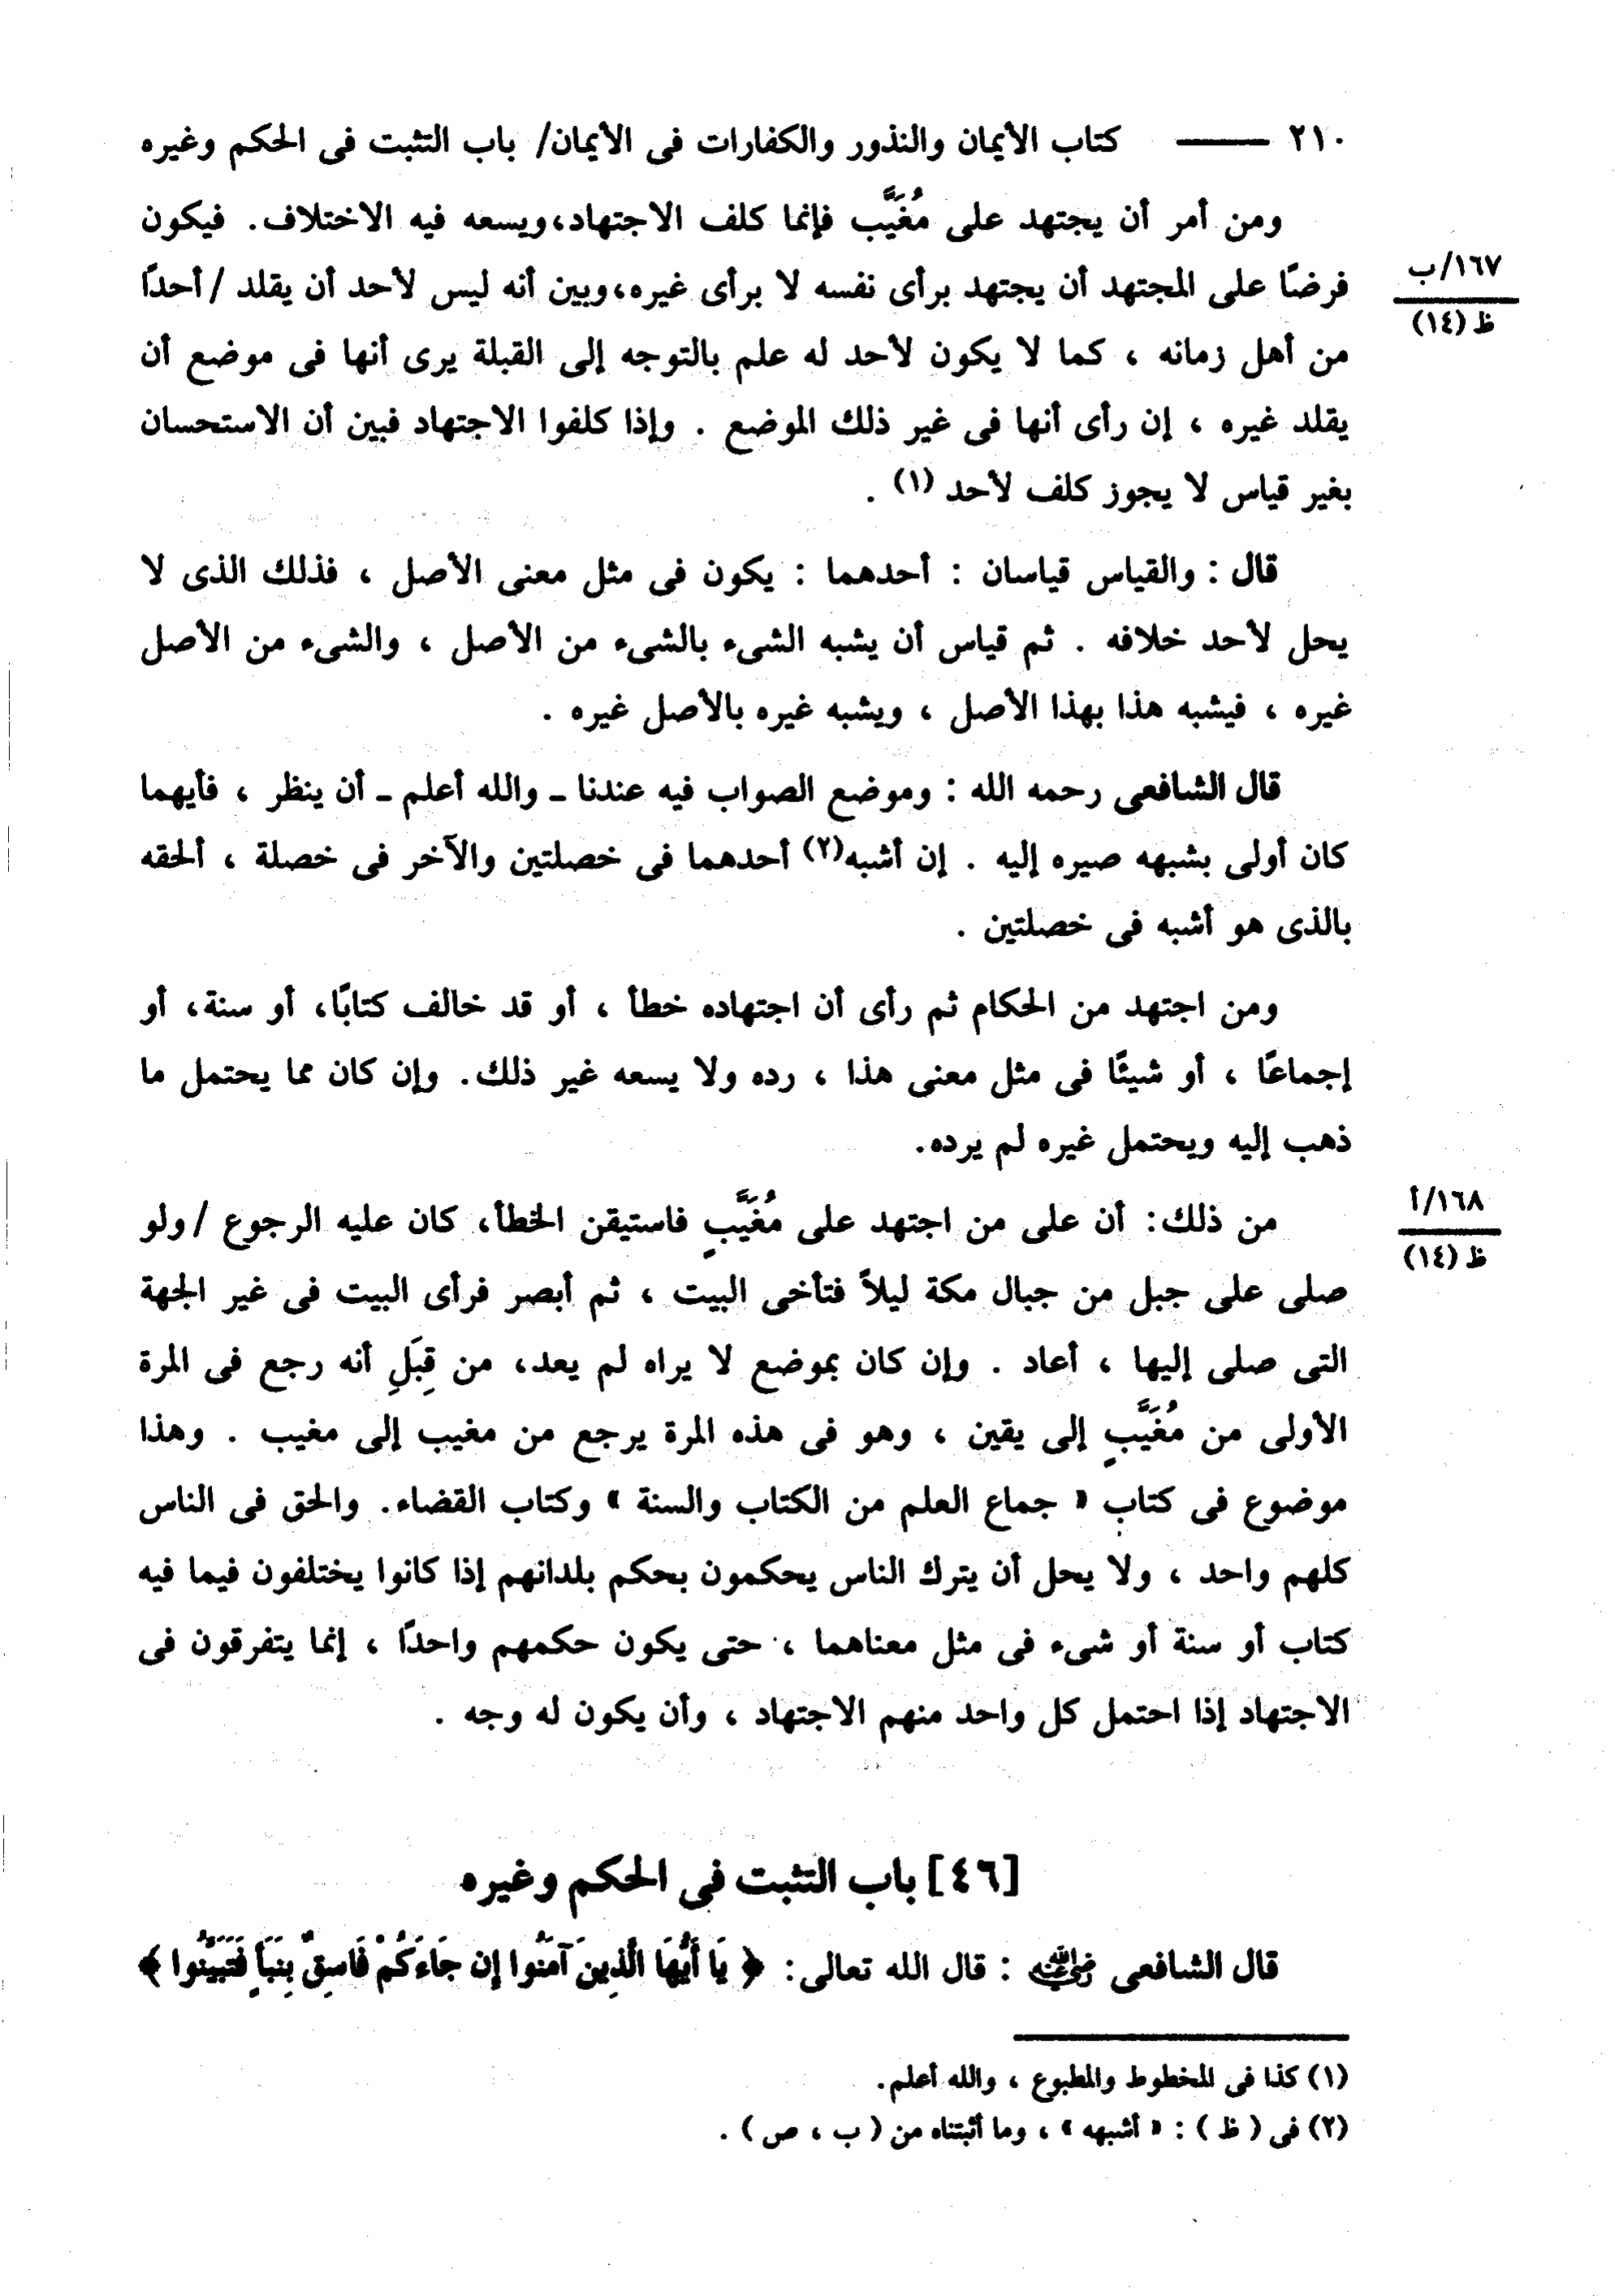 ٢١٠ ــــــ كتاب الأيمان والنذور والكفارات فى الأيمان/ باب التثبت فى الحكم وغيره
ومن أمر أن يجتهد على مُغَيَّب فإنما كلف الاجتهاد،ويسعه فيه الاختلاف. فيكون
١٦٧/ب
ظ (١٤)
فرضًا على المجتهد أن يجتهد برأى نفسه لا برأى غيره،وبين أنه ليس لأحد أن يقلد /أحدًا
من أهل زمانه ، كما لا يكون لأحد له علم بالتوجه إلى القبلة يرى أنها فى موضع أن
يقلد غيره ، إن رأى أنها فى غير ذلك الموضع . وإذا كلفوا الاجتهاد فبين أن الاستحسان
بغير قياس لا يجوز كلف لأحد (١) .
قال : والقياس قياسان : أحدهما : يكون فى مثل معنى الأصل ، فذلك الذى لا
يحل لأحد خلافه . ثم قياس أن يشبه الشىء بالشىء من الأصل ، والشىء من الأصل
غيره ، فيشبه هذا بهذا الأصل ، ويشبه غيره بالأصل غيره .
قال الشافعى رحمه الله : وموضع الصواب فيه عندنا ـ والله أعلم ـ أن ينظر ، فأيهما
كان أولى بشبهه صيره إليه . إن أشبه(٢) أحدهما فى خصلتين والآخر فى خصلة ، ألحقه
بالذى هو أشبه فى خصلتين .
ومن اجتهد من الحكام ثم رأى أن اجتهاده خطأ ، أو قد خالف كتابًا، أو سنة، أو
إجماعًا ، أو شيئًا فى مثل معنى هذا ، رده ولا يسعه غير ذلك. وإن كان مما يحتمل ما
ذهب إليه ويحتمل غيره لم يرده.
١٦٨/أ
ظ (١٤)
من ذلك: أن على من اجتهد على مُغَيَّبٍ فاستيقن الخطأ، كان عليه الرجوع /ولو
صلى على جبل من جبال مكة ليلاً فتأخى البيت ، ثم أبصر فرأى البيت فى غير الجهة
التى صلى إليها ، أعاد . وإن كان بموضع لا يراه لم يعد، من قِبَلِ أنه رجع فى المرة
الأولى من مُغَيَّبٍ إلى يقين ، وهو فى هذه المرة يرجع من مغيب إلى مغيب . وهذا
موضوع فى كتاب « جماع العلم من الكتاب والسنة » وكتاب القضاء. والحق فى الناس
كلهم واحد ، ولا يحل أن يترك الناس يحكمون بحكم بلدانهم إذا كانوا يختلفون فيما فيه
كتاب أو سنة أو شىء فى مثل معناهما ، حتى يكون حكمهم واحدًا ، إنما يتفرقون فى
الاجتهاد إذا احتمل كل واحد منهم الاجتهاد ، وأن يكون له وجه .
[٤٦] باب التثبت فى الحكم وغيره
قال الشافعى رضي الله عنه : قال الله تعالى: ﴿ يَا أَيُّهَا الَّذِينَ آمَنُوا إِن جَاءَكُمْ فَاسِقٌ بِنَبَأٍ فَتَبَيَّنُوا ﴾
(١) كذا فى المخطوط والمطبوع ، والله أعلم.
(٢) فى ( ظ ) : « أشبهه » ، وما أثبتناه من ( ب ، ص ) .